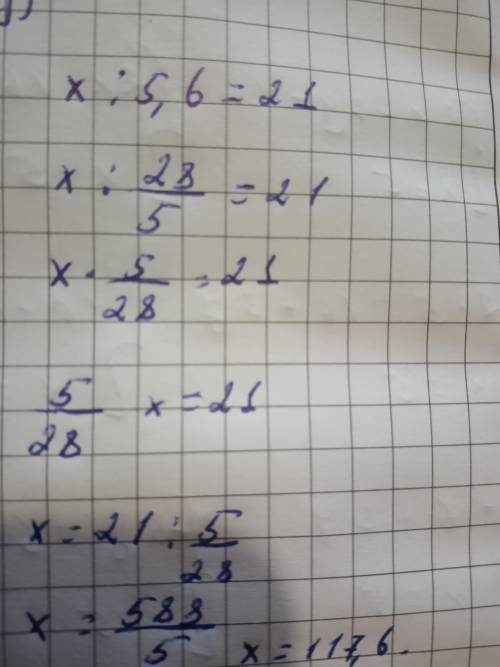 x : 5,6 = 21
x : 28/5 = 21
x · 5/28 = 21
5/28 x = 21
x = 21 : 5/28
x = 588/5 x = 117,6.